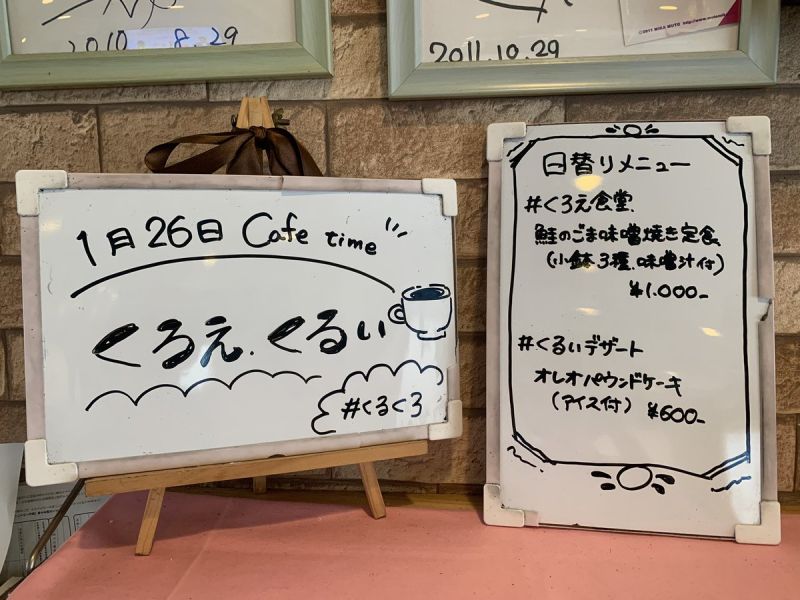 2010 8.29
2011.10.29
©2011 MIKA MUTO http://www.
1月26日 Cafe time
くろえ、くるい
#くるくろ
日替りメニュー
#くろえ食堂
鮭のごま味噌焼き定食
(小鉢3種、味噌汁付)
¥1.000-
#くるいデザート
オレオパウンドケーキ
(アイス付) ¥600-